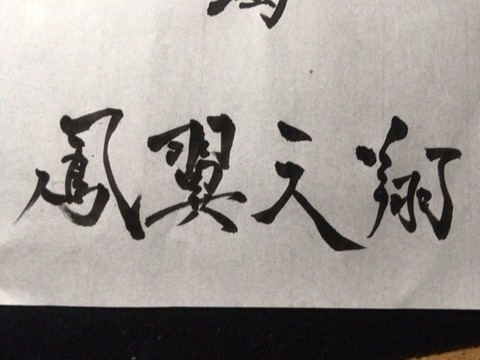 鳳翼天翔